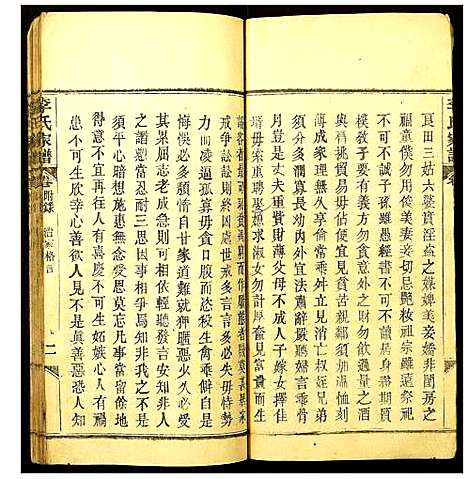 良田三姑六婆實淫盜之媒婢美妾嬌非閨房之
福童僕勿用俊美妻妾切忌艷妝祖宗雖遠祭祀
不可不誠子孫雖愚經書不可不讀居身務期質
樸教子要有義方勿貪意外之財勿飲過量之酒
與肩挑貿易毋佔便宜見貧苦親鄰須加溫恤刻
薄成家理無久享倫常乖舛立見消亡叔姪兄弟
須分多潤寡長幼內外宜法肅辭嚴聽婦言乖骨
肉豈是丈夫重貲財薄父母不成人子嫁女擇佳
壻毋索重聘娶媳求淑女勿計厚奩見富貴
戒爭訟訟則終凶處世戒多言言多必失毋恃勢
力而凌逼孤寡毋貪口腹而恣殺生禽乖僻自是
悔悞必多頹惰自甘家道難成狎暱惡少久必受
其累屈志老成急則可相依輕聽發言安知非人
之譖愬當忍耐三思因事相爭焉知非我之不是
須平心暗想施惠無念受恩莫忘凡事當留餘地
得意不宜再往人有喜慶不可生妬嫉心人有禍
患不可生欣幸心善欲人見不是眞善惡恐人知
李氏家譜
卷
附錄
治家格言
二
李氏家譜
卷